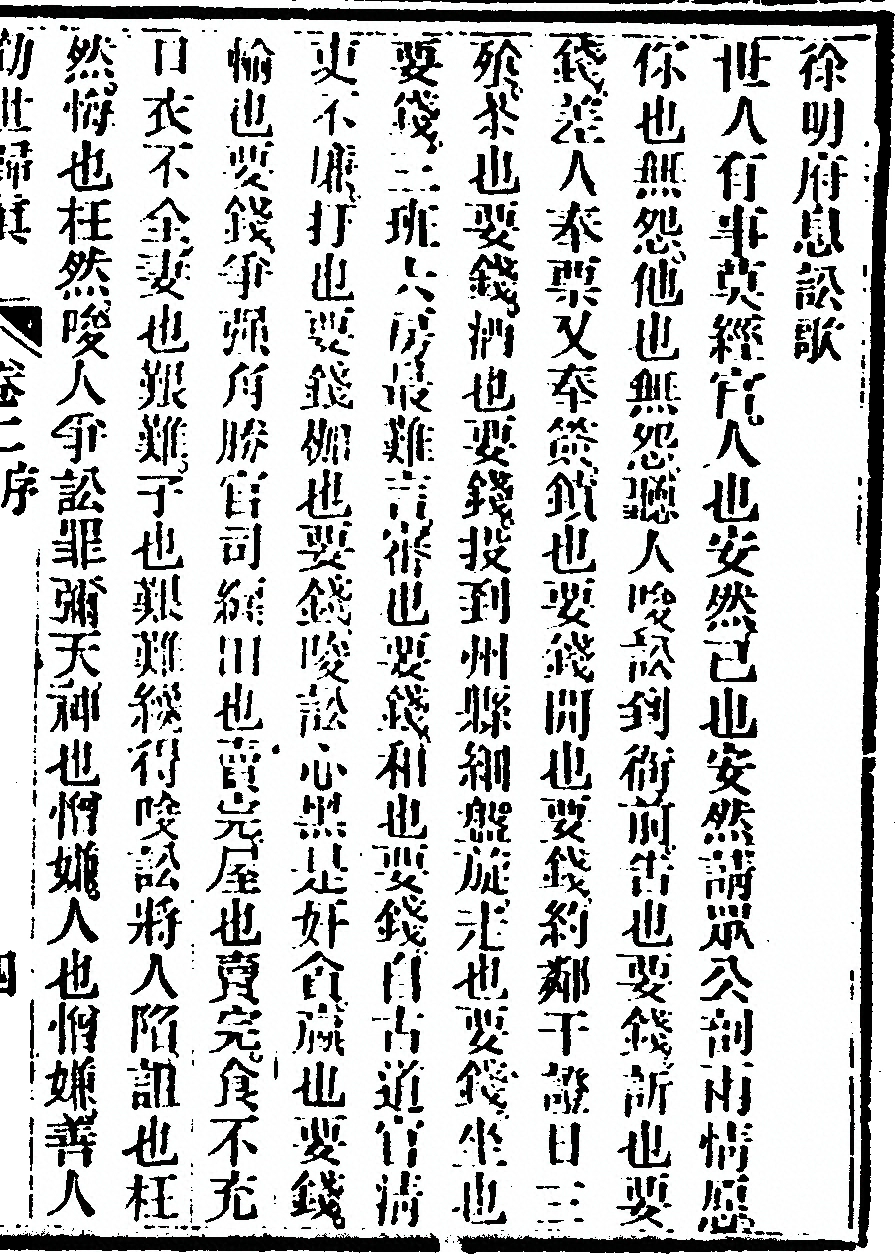 徐明府息訟歌
世人有事莫經官人也安然己也安然請眾公剖兩情愿
你也無怨他也無怨聽人唆訟到衙前告也要錢訴也要
錢差人奉票又奉簽鎖也要錢開也要錢約鄰干證日三
飱茶也要錢酒也要錢投到州縣細盤旋走也要錢坐也
要錢三班六房最難言審也要錢和也要錢自古道官清
吏不廉打也要錢枷也要錢唆訟心黑是奸貪贏也要錢
輸也要錢爭强角勝官司纏田也賣完屋也賣完食不充
口衣不全妻也艱難子也艱難纔得唆訟將人陷詛也枉
然悔也枉然唆人爭訟罪彌天神也憎嫌人也憎嫌善人
勸世歸真 卷二序 四